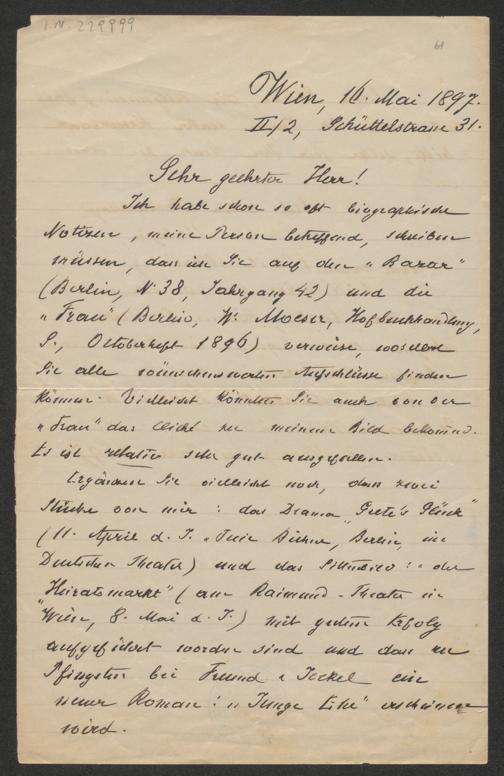 I.N. 229999
61
Wien, 16. Mai 1897.
II/2, Schüttelstrasse 31.
Sehr geehrter Herr!
Ich habe schon so oft biographische
Notizen, meine Person betreffend, schreiben
müssen, dass ich Sie auf den „Bazar"
(Berlin, N: 38, Jahrgang 42) und die
„Frau" (Berlin, W. Moeser, Hofbuchhandlung,
S., Octoberheft 1896) verweise, woselbst
Sie alle wünschenswerten Aufschlüsse finden
können. Vielleicht könnten Sie auch von der
„Frau" das Cliché zu meinem Bild bekommen.
Es ist relativ sehr gut ausgefallen.
Ergänzen Sie vielleicht noch, dass zwei
Stücke von mir: das Drama „Grete's Glück"
(11. April d. J. „Freie Bühne, Berlin, im
Deutschen Theater) und das Sittenbild: „der
Heiratsmarkt" (am Raimund-Theater in
Wien, 8. Mai d. J.) mit gutem Erfolg
aufgeführt worden sind und dass zu
Pfingsten bei Freund & Jeckel ein
neuer Roman: „Junge Ehe" erscheinen
wird.